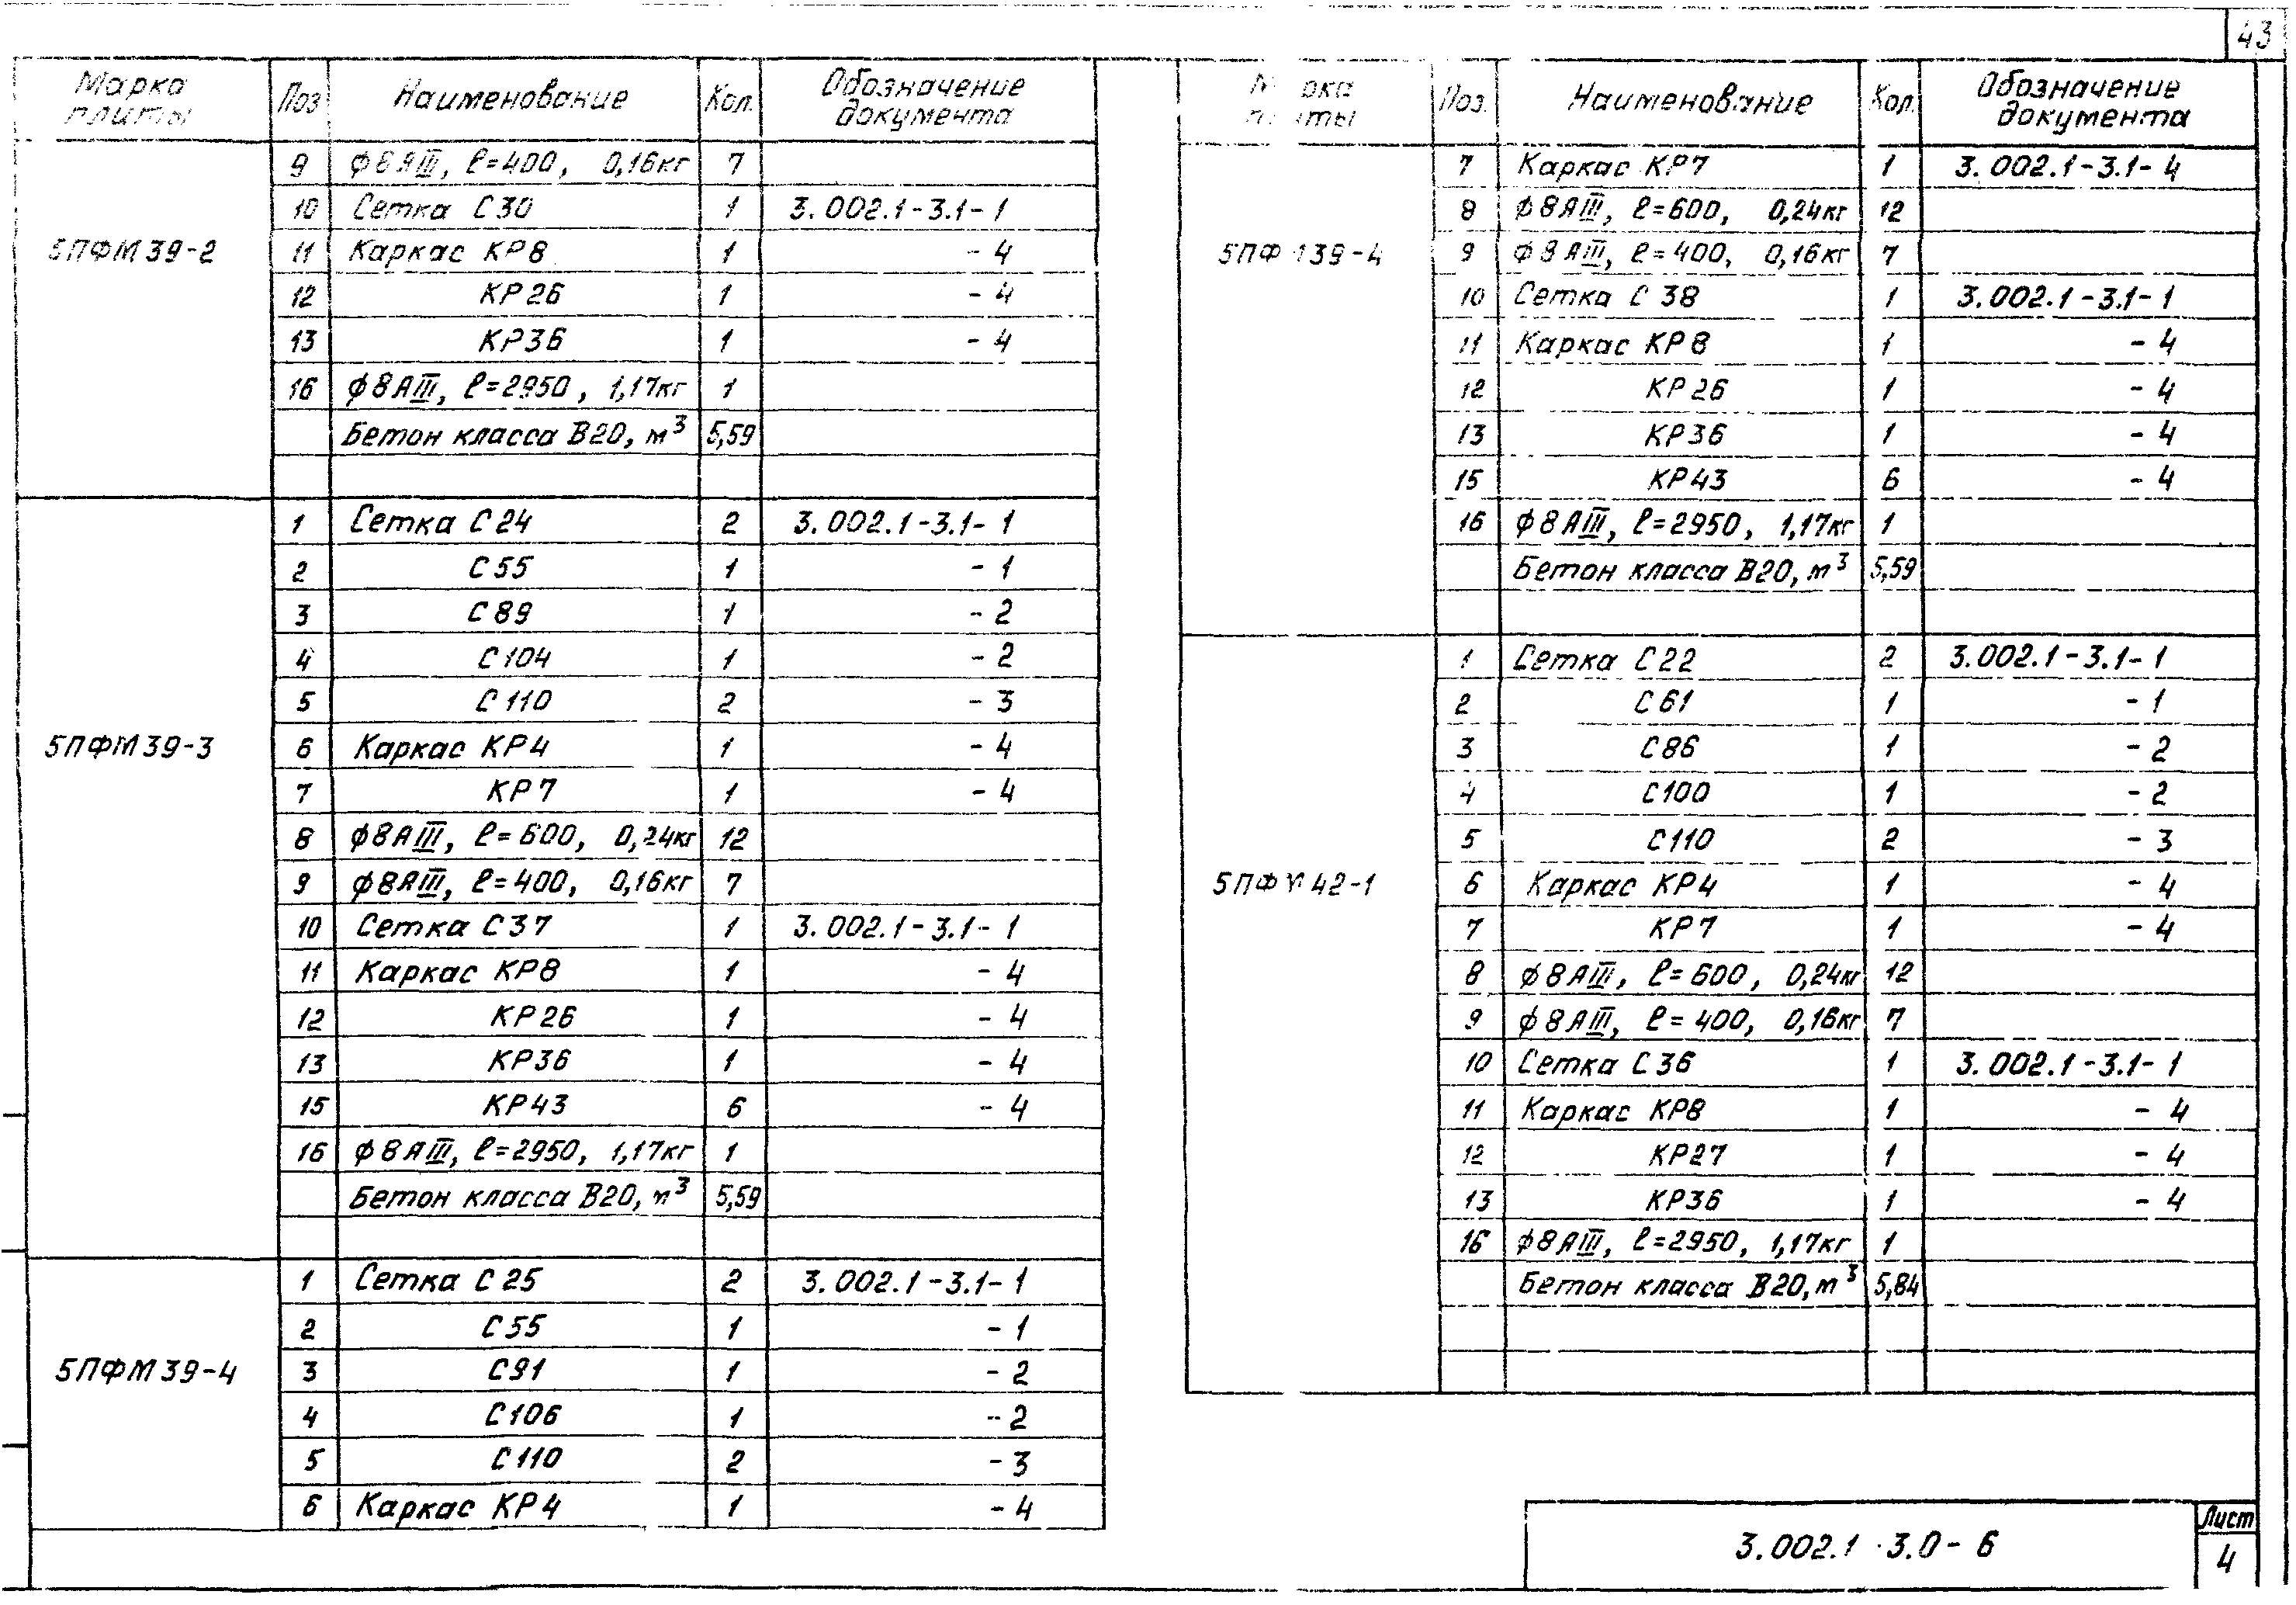 43
Марка плиты Поз Наименование Кол. Обозначение документа
5ПФМ39-2
9 ф8АIII, ℓ=400, 0,16кг 7
10 Сетка С30 1 3.002.1-3.1-1
11 Каркас КР8 1 -4
12 КР26 1 -4
13 КР36 1 -4
16 ф8АIII, ℓ=2950, 1,17кг 1
Бетон класса В20, м³ 5,59
5ПФМ39-3
1 Сетка С24 2 3.002.1-3.1-1
2 С55 1 -1
3 С89 1 -2
4 С104 1 -2
5 С110 2 -3
6 Каркас КР4 1 -4
7 КР7 1 -4
8 ф8АIII, ℓ=600, 0,24кг 12
9 ф8АIII, ℓ=400, 0,16кг 7
10 Сетка С37 1 3.002.1-3.1-1
11 Каркас КР8 1 -4
12 КР26 1 -4
13 КР36 1 -4
15 КР43 6 -4
16 ф8АIII, ℓ=2950, 1,17кг 1
Бетон класса В20, м³ 5,59
5ПФМ39-4
1 Сетка С25 2 3.002.1-3.1-1
2 С55 1 -1
3 С91 1 -2
4 С106 1 -2
5 С110 2 -3
6 Каркас КР4 1 -4
Марка плиты Поз. Наименование Кол. Обозначение документа
5ПФМ39-4
7 Каркас КР7 1 3.002.1-3.1-4
8 ф8АIII, ℓ=600, 0,24кг 12
9 ф8АIII, ℓ=400, 0,16кг 7
10 Сетка С38 1 3.002.1-3.1-1
11 Каркас КР8 1 -4
12 КР26 1 -4
13 КР36 1 -4
15 КР43 6 -4
16 ф8АIII, ℓ=2950, 1,17кг 1
Бетон класса В20, м³ 5,59
5ПФМ42-1
1 Сетка С22 2 3.002.1-3.1-1
2 С61 1 -1
3 С86 1 -2
4 С100 1 -2
5 С110 2 -3
6 Каркас КР4 1 -4
7 КР7 1 -4
8 ф8АIII, ℓ=600, 0,24кг 12
9 ф8АIII, ℓ=400, 0,16кг 7
10 Сетка С36 1 3.002.1-3.1-1
11 Каркас КР8 1 -4
12 КР27 1 -4
13 КР36 1 -4
16 ф8АIII, ℓ=2950, 1,17кг 1
Бетон класса В20, м³ 5,84
3.002.1-3.0-6
Лист
4